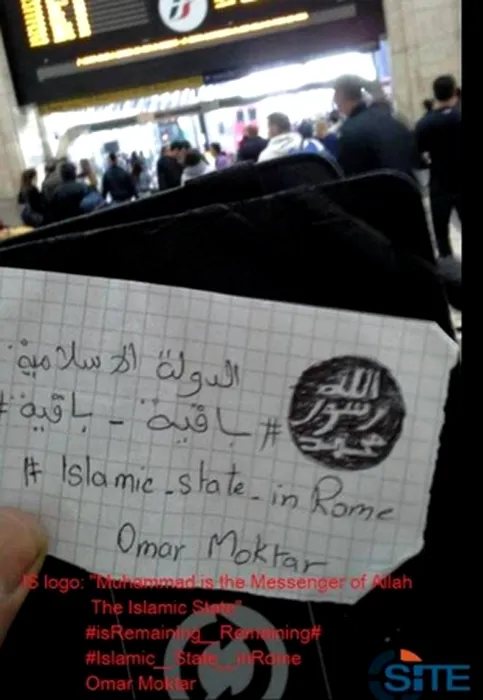 الدولة الاسلامية
#باقية - باقية#
الله
رسول
محمد
# Islamic_state_in Rome
Omar Moktar
IS logo: "Muhammad is the Messenger of Allah
The Islamic State"
#isRemaining_Remaining#
#Islamic_State_inRome
Omar Moktar
SITE